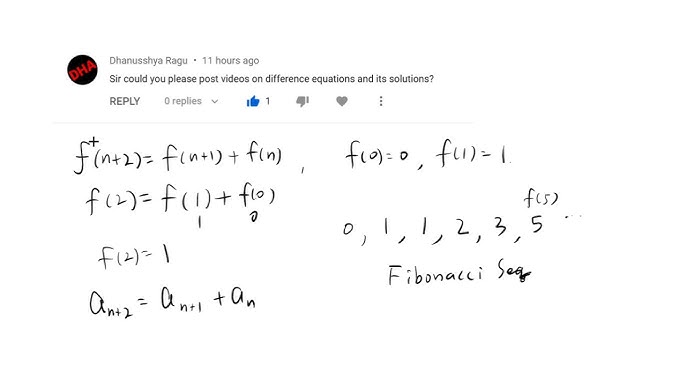 DHA
Dhanusshya Ragu • 11 hours ago
Sir could you please post videos on difference equations and its solutions?
REPLY 0 replies 1
f(n+2) = f(n+1) + f(n) , f(0)=0 , f(1)=1.
f(2) = f(1) + f(0)
1 0
f(2)=1
aₙ₊₂ = aₙ₊₁ + aₙ
f(5)
0, 1, 1, 2, 3, 5 ...
Fibonacci Seq